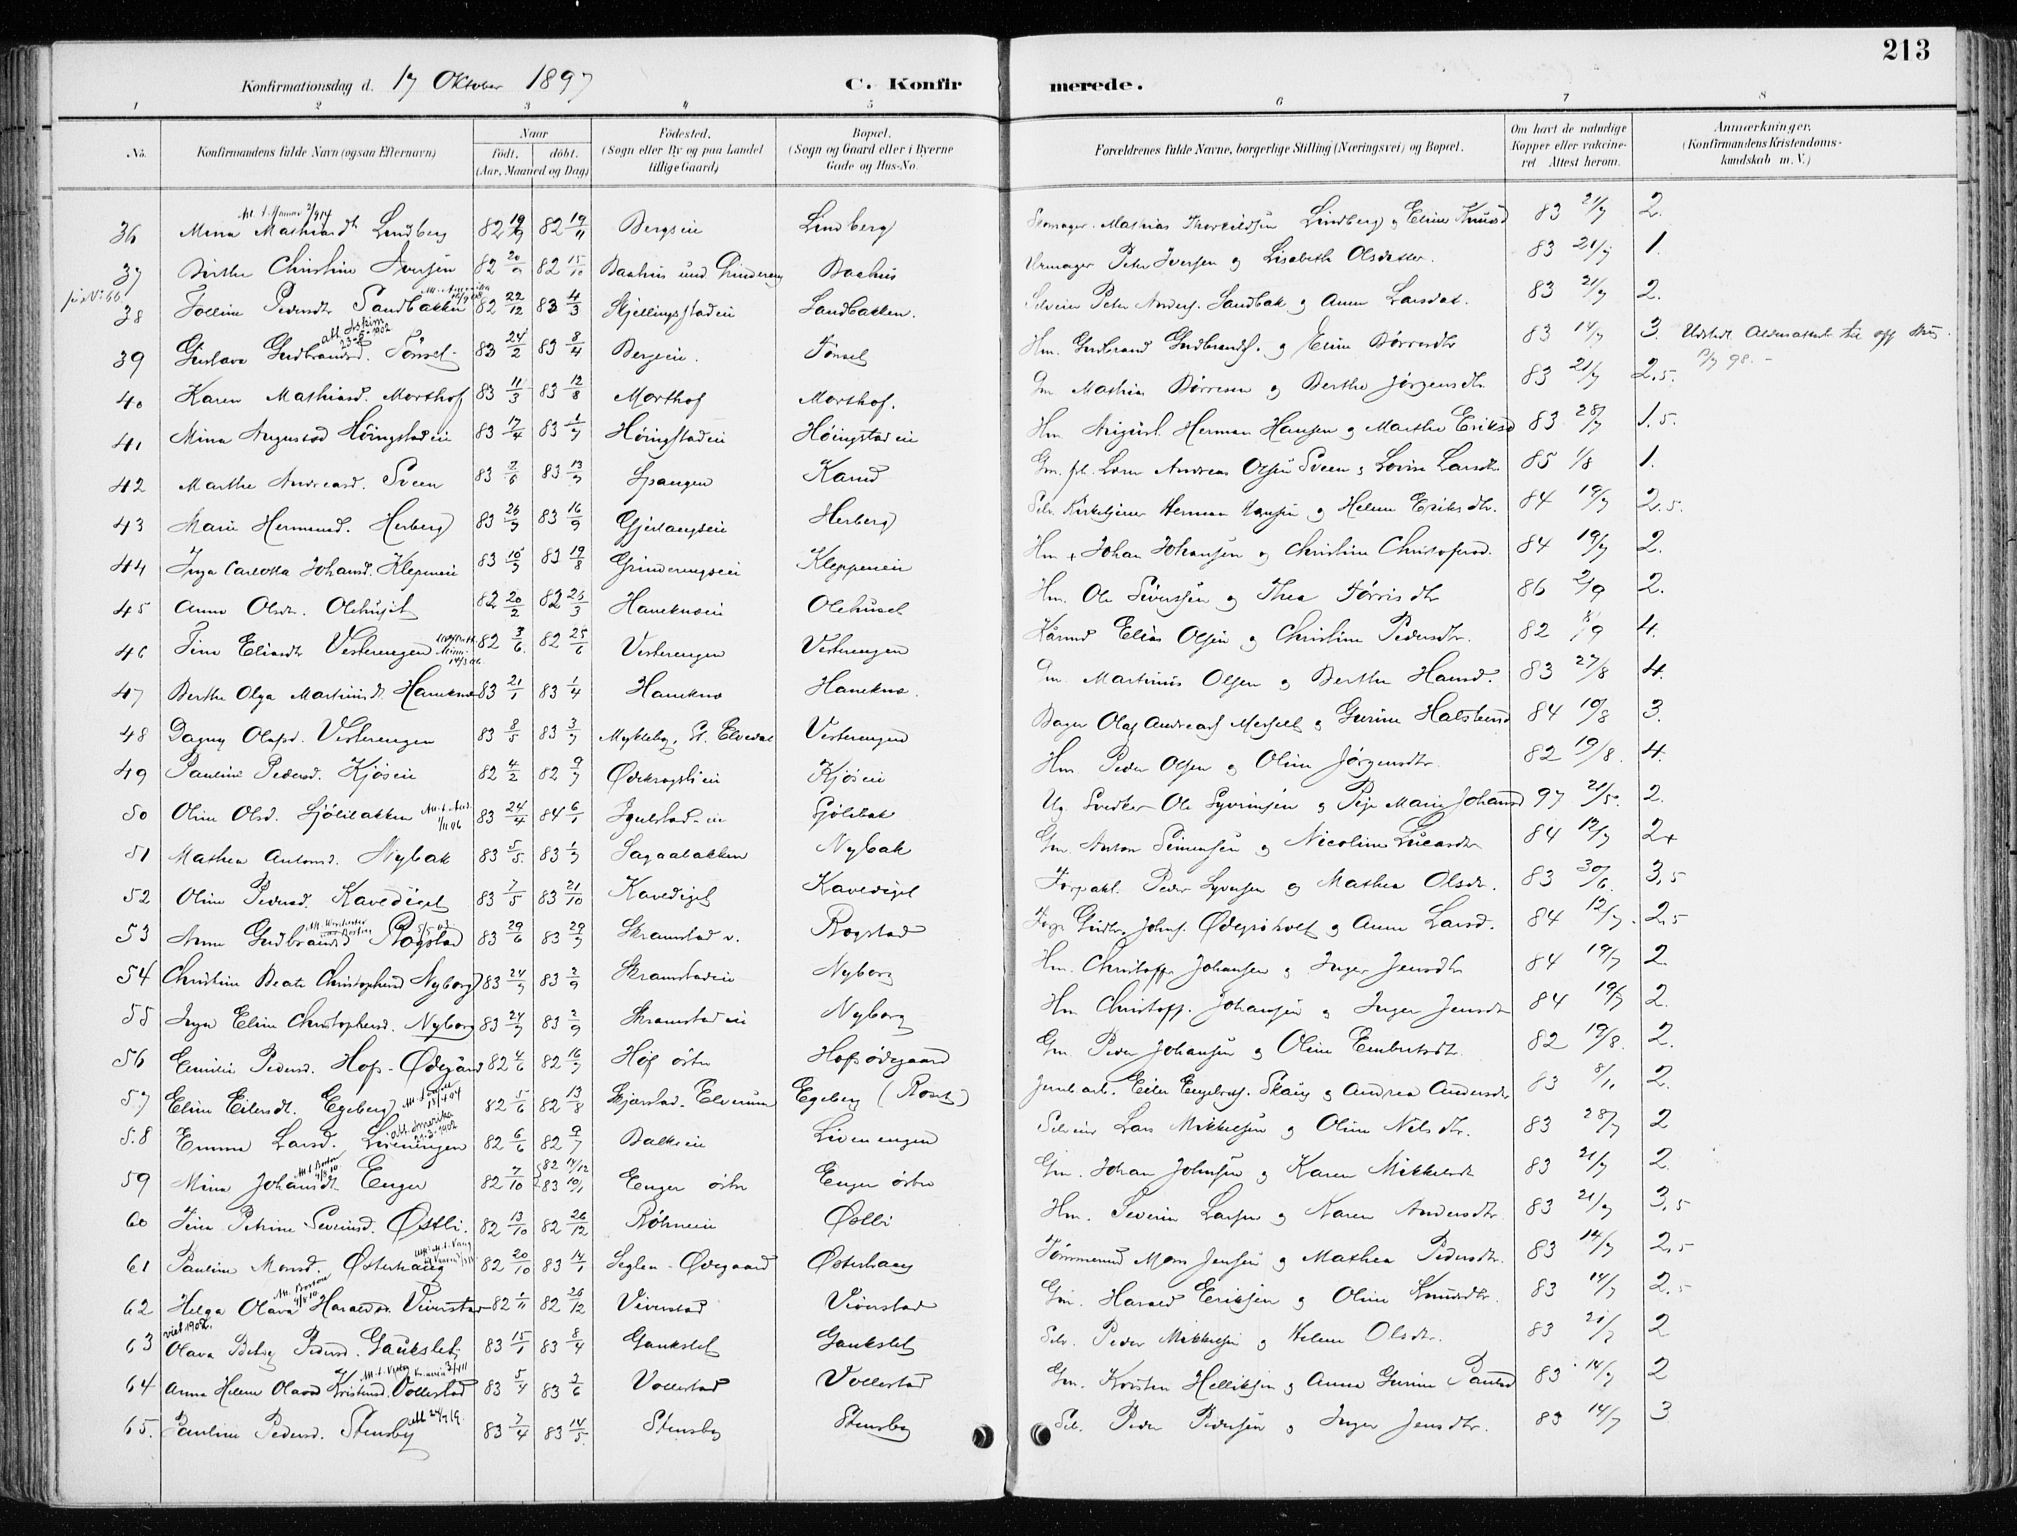 213
Konfirmationsdag d. 17 Oktober 1897 C. Konfirmerede.
1 2 3 4 5 6 7 8
No. Konfirmandens fulde Navn (ogsaa Efternavn) Naar födt. döbt. (Aar, Maaned og Dag) Födested. (Sogn eller By og paa Landet tillige Gaard) Bopæl. (Sogn og Gaard eller i Byerne Gade og Hus-No. Forældrenes fulde Navne, borgerlige Stilling (Næringsvei) og Bopæl. Om havt de naturlige Kopper eller vaccineret Attest herom. Anmærkninger. (Konfirmandens Kristendomskundskab m. V.)
36 Mina Mathiasdt Lindberg 82 19/9 82 19/11 Bergseie Lindberg Skomager Mathias Thorkildsen Lindberg og Eline Knusd 83 21/7 2.
37 Birthe Christine Iversen 82 20/9 82 15/10 Baahus und Grindereng Baahus Urmager Peter Iversen og Lisabeth Olsdatter 83 21/7 1.
38 Josline Pedersdt Sandbakken 82 22/12 83 4/3 Skjellingsstadeie Sandbakken. Selveier Peter Anders. Sandbak og Anne Larsdat. 83 21/7 2.
39 Gustava Gudbrandsd. Tönset 83 24/2 83 8/4 Bergseie. Tönset Hm. Gudbrand Gudbrands. og Eline Börresdtr 83 14/7 3. Udstedt Aldersattest
40 Karen Mathiasd. Morthof 83 11/3 83 12/8 Morthof Morthof. Gm Mathias Börresen og Berthe Jörgensdtr. 83 21/7 2.5.
41 Mina Augustad Höingstadeie 83 17/4 83 1/7 Höingstadeie Höingstadeie Hm Herman Hansen og Marthe Eriksd 83 28/7 1.5.
42 Marthe Andreasd. Sveen 83 2/6 83 13/7 Spangen Kamd Andreas Olsen Sveen og Lovise Larsdtr 85 1/8 1.
43 Marie Hermansd. Herberg 83 26/7 83 16/9 Gjerlangseie Herberg Selv. Kirketjener Herman Hansen og Helene Eriksdtr. 84 19/7 2.5.
44 Inga Carlotta Johansd. Kleppeneie 83 10/7 83 19/8 Grinderengseie Kleppeneie Hm + Johan Johansen og Christine Christofersd. 84 19/7 2.
45 Anne Olsdtr. Olehuset 82 20/2 82 26/3 Hanekneeie Olehuset Hm. Ole Sivertsen og Thea Törrisdtr 86 2/9 2.
46 Tina Eliasdtr Vesterengen 82 3/6 82 25/6 Vesterengen Vesterengen Kaarmd Elias Olsen og Christine Pedersdtr. 82 4.
47 Berthe Olga Martinusdt. Hanekne 83 21/1 83 1/4 Hanekne Hanekne. Gm. Martinus Olsen og Berthe Hansd. 83 27/8 4.
48 Dagny Olafsd. Vesterengen 83 8/5 83 3/7 Mykleby, St. Elvedal Vesterengen Bager Olaf Andreas og Gurine Halstensd 84 19/8 3.
49 Pauline Pedersd. Kjöseie 82 4/2 82 9/7 Ödekragslieie Kjöseie Hm Peder Olsen og Oline Jörgensdtr. 82 19/8. 4.
50 Oline Olsd. Sjölibakken 83 24/4 84 6/1 Igelstad-eie Sjölibak Ug. Snedker Ole Syverinsen og Pige Marie Johansd 97 21/5. 2.
51 Mathea Antonsd. Nybak 83 5/5. 83 1/7 Sagaabakken Nybak Gm. Anton Simensen og Nicoline Lucasdtr 84 12/7 2+
52 Oline Pedersd. Kavediget 83 7/5 83 21/10 Kavediget Kavediget Forpakt. Peder Syversen og Mathea Olsdt. 83 30/6. 3,5
53 Anne Gudbrandsd Rogstad 83 29/6 83 29/7 Skramstad v. Rogstad Gudbr. Johns. Ödegrdholt og Anne Larsd. 84 12/7. 2,5
54 Christine Beate Christophersd Nyborg 83 24/7 83 2/9 Skramstadeie Nyborg Hm. Christoffer Johansen og Inger Jensdtr 84 19/7 2.
55 Inga Eline Christophersd. Nyborg 83 24/7 83 2/9 Skramstadeie Nyborg Hm Christoff. Johansen og Inger Jensdtr 84 19/7 2.
56 Emilie Pedersd. Hofs-Ödegård 82 4/6 82 16/7 Hof östre Hofsödegaard Gm. Peder Johansen og Oline Embretsdtr. 82 19/8. 2.
57 Eline Eilersdt. Egeberg 82 5/6 82 13/8 Skjærstad. Elverum Egeberg (Roset) Jernb.arb. Eiler Engebrets. Skaug og Andrea Andersdtr 83 8/11 2.
58 Emma Larsd. Liveningen 82 6/6 82 9/7 Balkeeie Livenengen Selveier Lars Mikkelsen og Oline Nilsdtr. 83 28/7 2
59 Mina Johansdt Enger 82 7/10 82 14/12 83 10/1 Enger östre Enger östre Gm. Johan Johnsen og Karen Mikkelsdt 83 21/7 2.
60 Tina Petrine Severinsd. Östli. 82 13/10 82 26/12 Röhneeie Östli Hm. Severin Larsen og Karen Andersdtr 83 21/7 3,5
61 Pauline Monsd. Österhaug 82 20/10 83 14/1 Seglen-Ödegaard Österhaug Tömmermd Mons Jensen og Mathea Pedersdtr. 83 14/7 2,5
62 Helga Olava Haraldsdr. Viverstad 82 1/11 82 26/12 Viverstad Viverstad Gm. Harald Eriksen og Oline Knudsdtr. 83 14/7 2.5
63 Olava Betsy Pedersd. Gaukslet. 83 15/1 83 8/4 Gaukslet Gaukslet Selv. Peder Mikkelsen og Helene Olsdtr. 83 21/7 2
64 Anna Helene Olava Kristensd. Vollestad 83 5/4 83 2/6 Vollestad Vollestad Gm. Kristen Helliksen og Anne Gurine Paulsd 83 14/7 2
65. Pauline Pedersd. Stensby 83 7/4 83 14/5. Stensby Stensby Selv. Peder Pedersen og Inger Jensdtr. 83 14/7 3.